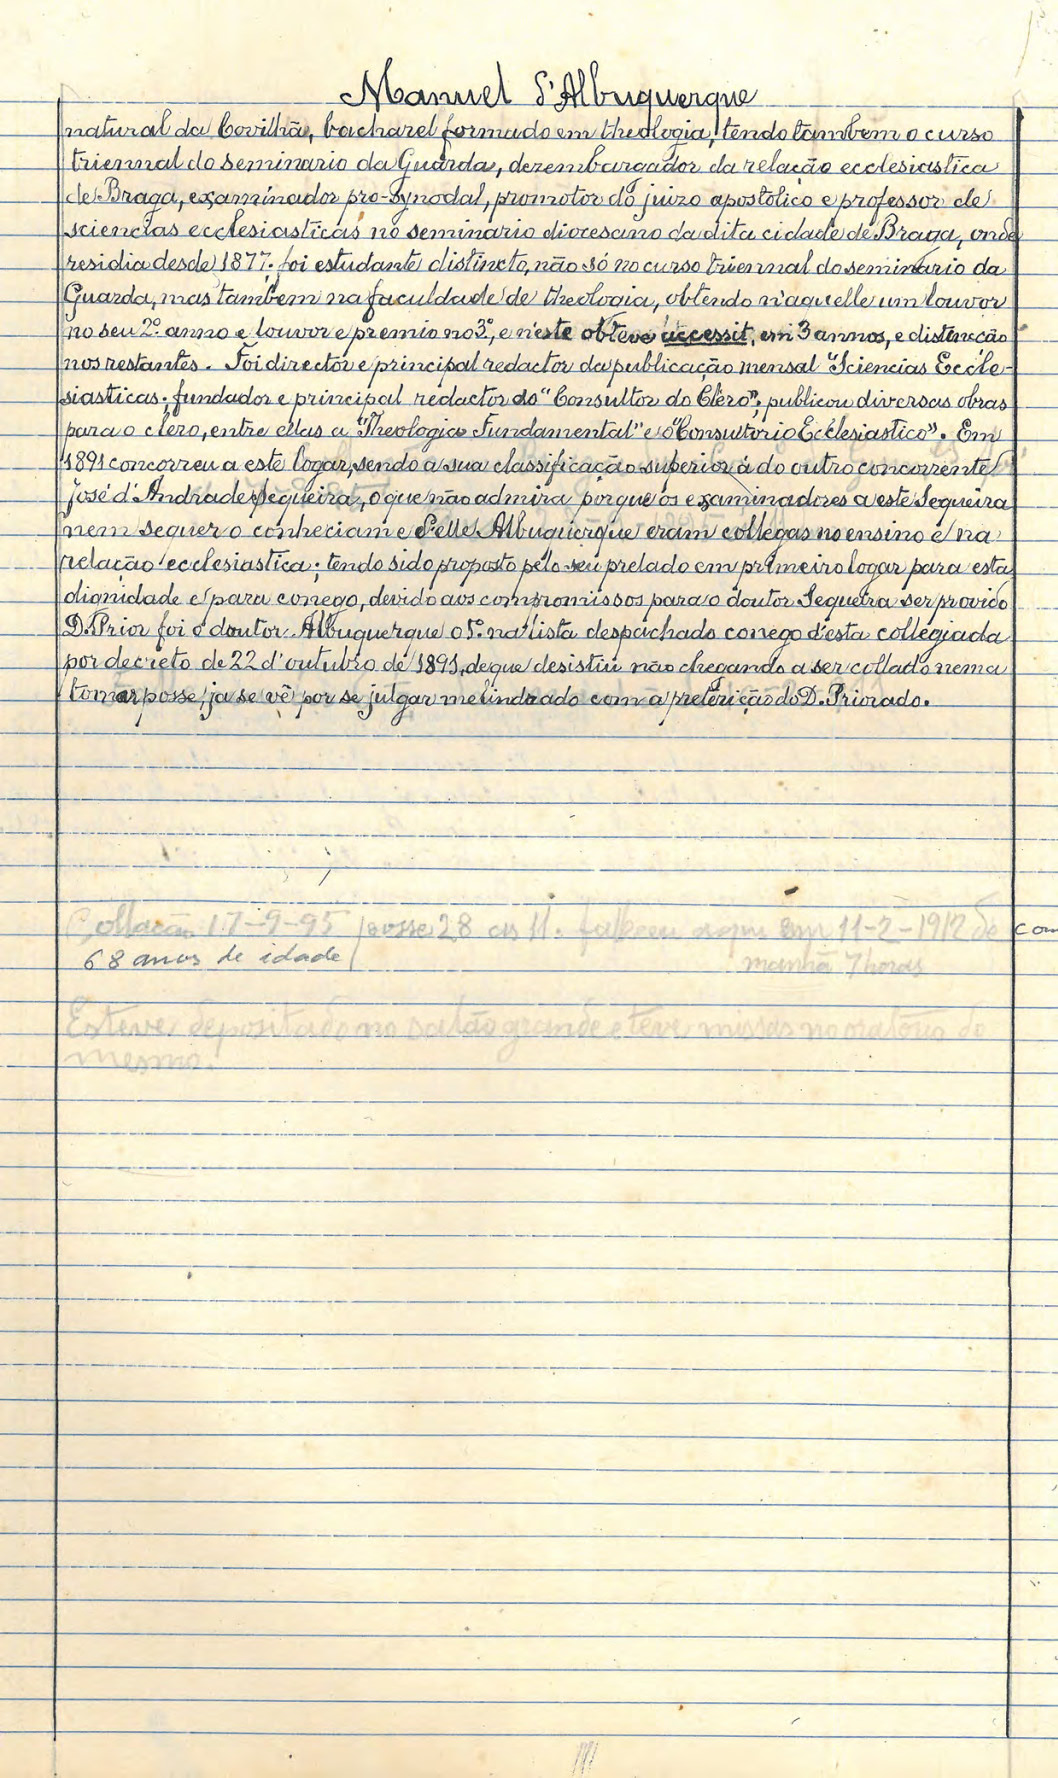 Manuel d'Albuquerque
natural da Covilhã, bacharel formado em theologia, tendo tambem o curso
triennal do seminario da Guarda, dezembargador da relação ecclesiastica
de Braga, examinador pro-synodal, promotor do juizo apostolico e professor de
sciencias ecclesiasticas no seminario diocesano da dita cidade de Braga, onde
residia desde 1877; foi estudante distincto, não só no curso triennal do seminario da
Guarda, mas tambem na faculdade de theologia, obtendo n'aquelle um louvor
no seu 2º anno e louvor e premio no 3º, e n'este obteve accessit, em 3 annos, e distincção
nos restantes. Foi director e principal redactor da publicação mensal "Sciencias Eccle-
siasticas; fundador e principal redactor do "Consultor do Clero"; publicou diversas obras
para o clero, entre ellas a "Theologia Fundamental" e o "Consultorio Ecclesiastico". Em
1891 concorreu a este logar, sendo a sua classificação superior á do outro concorrente
José d'Andrade Sequeira, o que não admira porque os examinadores a este Sequeira
nem sequer o conheciam e d'elle Albuquerque eram collegas no ensino e na
relação ecclesiastica; tendo sido proposto pelo seu prelado em primeiro logar para esta
dignidade e para conego, devido aos compromissos para o doutor Sequeira ser provido
D. Prior foi o doutor Albuquerque o 1º na lista despachado conego d'esta collegiada
por decreto de 22 d'outubro de 1891, de que desistiu não chegando a ser collado nem a
tomar posse, ja se vê por se julgar melindrado com a preterição do D. Priorado.
Collação 17-9-95 posse 28 as 11. faleceu aqui em 11-2-1912 de com
68 anos de idade manhã 7 horas
Esteve depositado no salão grande e teve missas no oratorio do
mesmo.